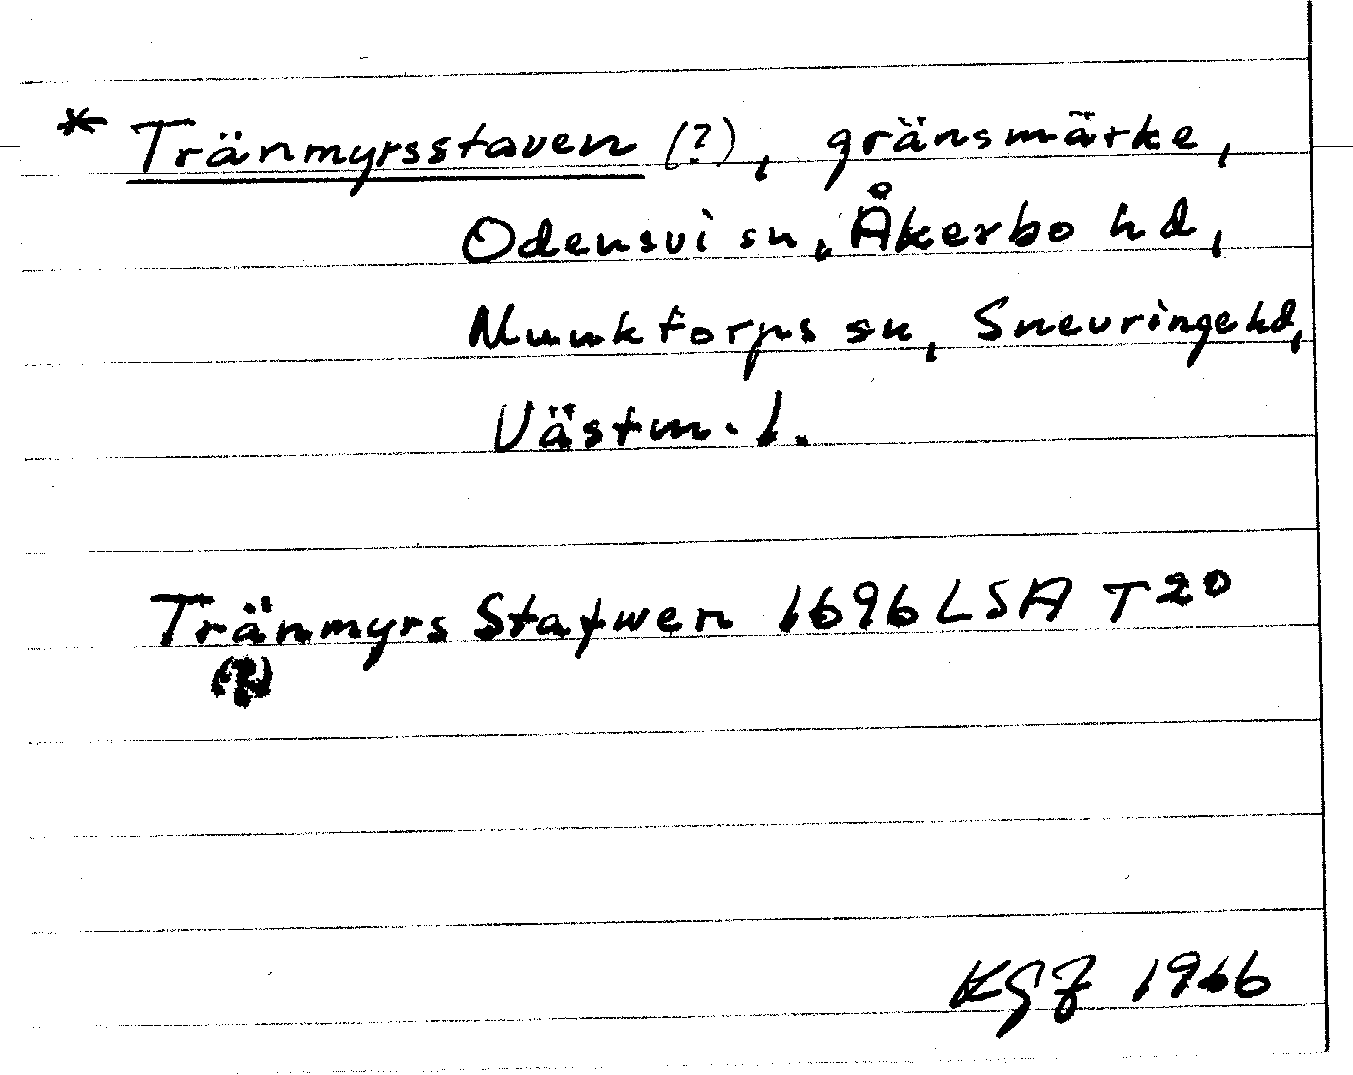 * Tränmyrsstaven (?), gränsmärke,
Odensvi sn, Åkerbo hd,
Munktorps sn, Snevringe hd,
Västm. l.
Tränmyrs Stafwen 1696 LSA T20
(?)
KGJ 1966